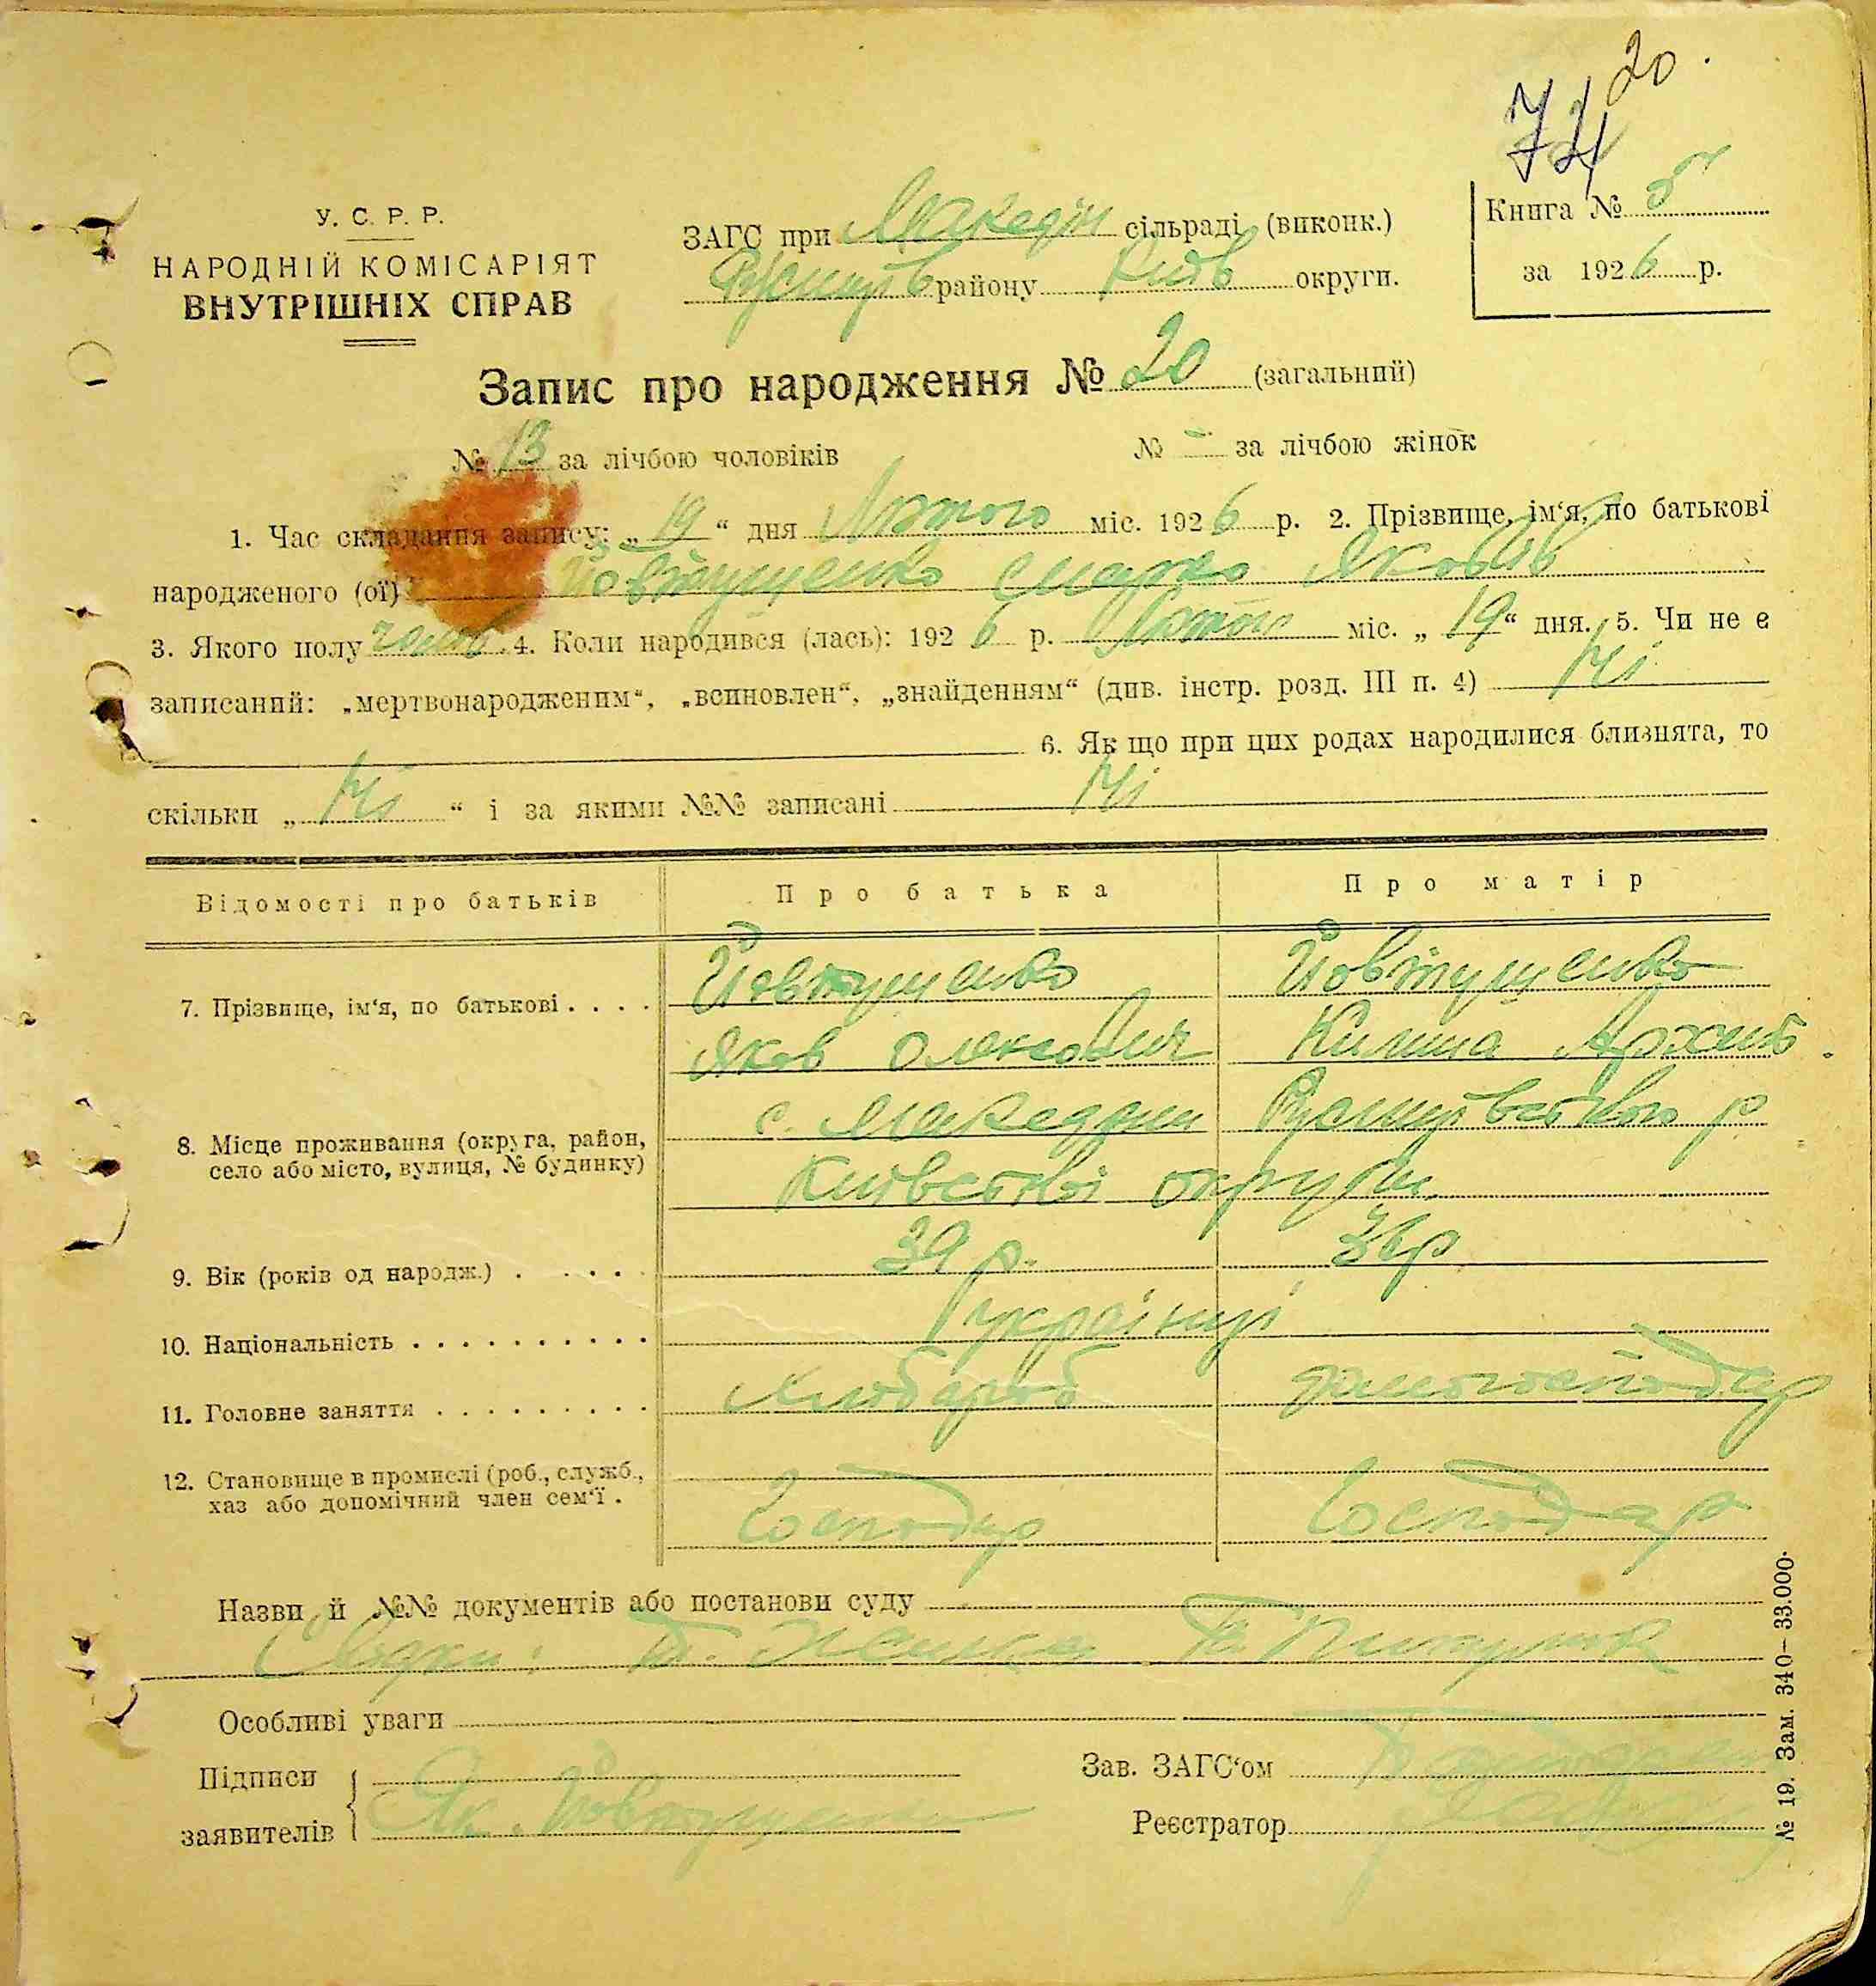 20.
74
У. С. Р. Р.
НАРОДНІЙ КОМІСАРІЯТ
ВНУТРІШНІХ СПРАВ
ЗАГС при Македін сільраді (виконк.)
району Київ округи.
Книга № 5
за 1926 р.
Запис про народження № 20 (загальний)
№ 13 за лічбою чоловіків № - за лічбою жінок
1. Час складання запису: „19“ дня Лютого міс. 1926 р. 2. Прізвище, ім'я, по батькові
народженого (ої) Йовтущенко Марко Яковів
3. Якого полу чолов. 4. Коли народився (лась): 1926 р. Лютого міс. „19“ дня. 5. Чи не є
записаний: „мертвонародженим“, „всиновлен“, „знайденням“ (див. інстр. розд. III п. 4) Ні
6. Як що при цих родах народилися близнята, то
скільки „Ні“ і за якими №№ записані Ні
Відомості про батьків Про батька Про матір
7. Прізвище, ім'я, по батькові . . . . Йовтущенко Йовтущенко
Яков Олексович Килина Архип.
8. Місце проживання (округа, район,
село або місто, вулиця, № будинку)
с. Македони р
Київської округи
9. Вік (років од народж.) . . . . . 39 р. 36 р
10. Національність . . . . . . . . . . українці
11. Головне заняття . . . . . . . . . хлібароб домогосподар
12. Становище в промислі (роб., служб.,
хаз або допомічний член сем'ї .
Господар Господар
Назви й №№ документів або постанови суду
Свідки:
Особливі уваги
Підписи
заявителів
Як. Йовтущенко
Зав. ЗАГС'ом
Реєстратор
№ 19. Зам. 340–33.000.